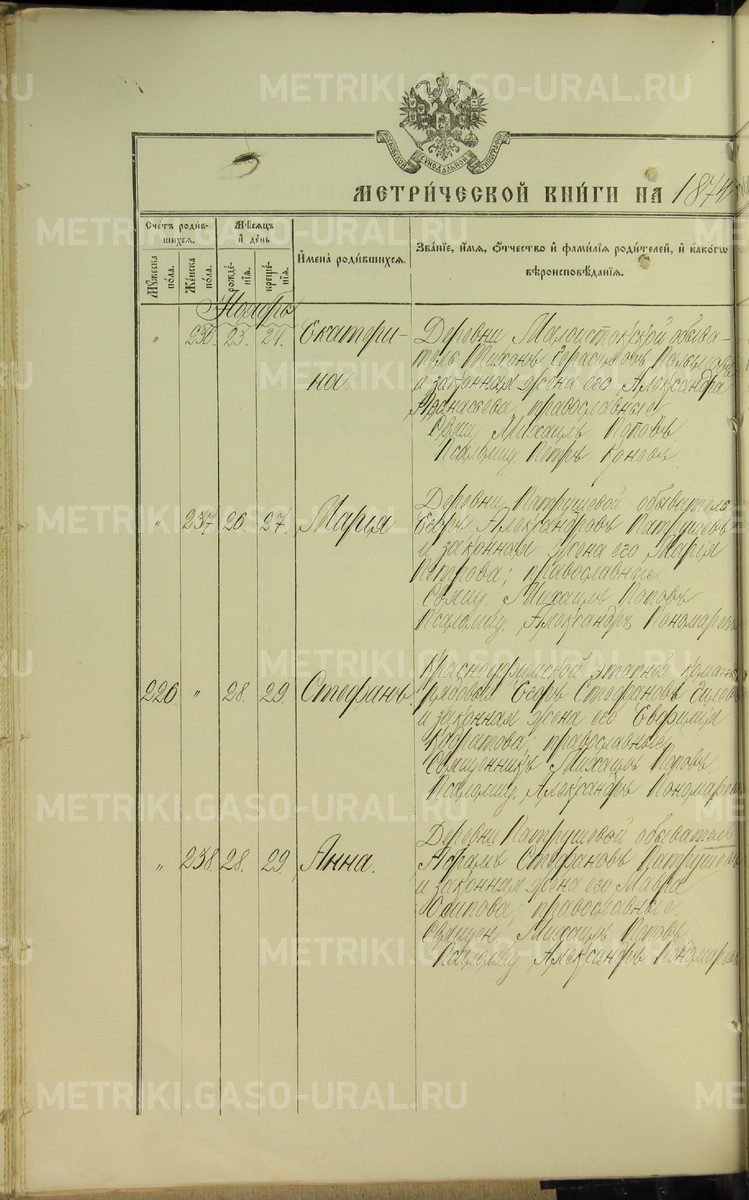 METRIKI.GASO-URAL.RU
МОСКОВСКОЙ СѴНОДАЛЬНОЙ ТИПОГРАФІИ
МЕТРИ́ЧЕСКОЙ КНИ́ГИ НА 1874
Сче́тъ роди́в-
шихся.
Мꙋ́жеска по́ла.
Же́нска по́ла.
Мѣ́сяцъ
и҆ де́нь
рожде́-нїя.
креще́-нїя.
И҆мена̀ роди́вшихся.
Зва́нїе, и҆́мя, ѻ҆́тчество и҆ фами́лїя роди́телей, и҆ како́гѡ
вѣроисповѣ́данїя.
Ноябрь
" 236. 25. 27. Екатери-
на.
Деревни Малоистокской обыва-
тель Тихонъ Герасимовъ
и законная жена его Александра
Афанасьева, православные
Свящ. Михаилъ Поповъ
Псаломщ. Петръ
" 237. 26. 27. Марія
Деревни Патрушевой обыватель
Егоръ Александровъ Патрушевъ
и законная жена его Марія
Петрова; православные.
Свящ. Михаилъ Поповъ
Псаломщ. Александръ Пономаревъ
226. " 28. 29. Стефанъ
Красноуфимской этапной коман-
рядовой Егоръ Стефановъ
и законная жена его Евфимія
православные
Священникъ Михаилъ Поповъ.
Псаломщ. Александръ Пономарев
" 238. 28. 29. Анна.
Деревни Патрушевой обыватель
Стефановъ Патрушевъ
и законная жена его Мавра
Юсипова; православные.
Священ. Михаилъ Поповъ
Псаломщ. Александръ Пономарев